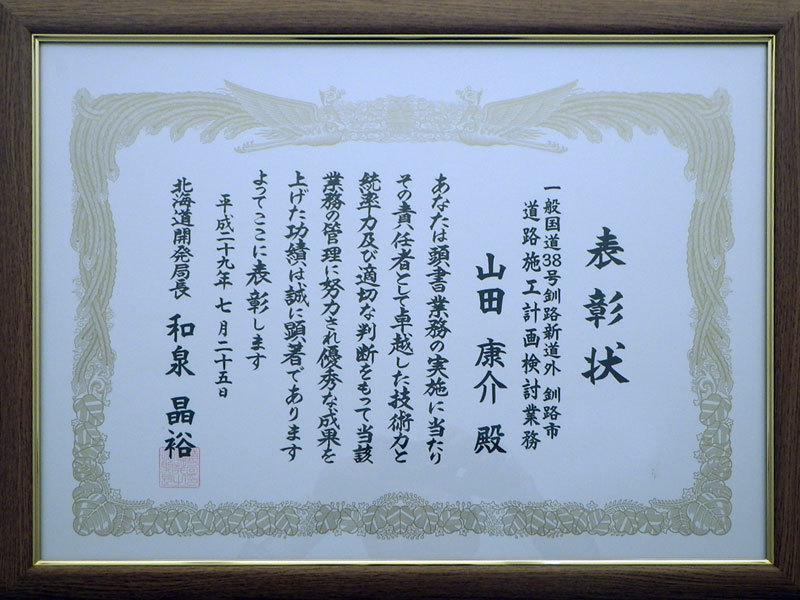 表彰状
一般国道38号釧路新道外 釧路市
道路施工計画検討業務
山田 康介 殿
あなたは頭書業務の実施に当たり
その責任者として卓越した技術力と
統率力及び適切な判断をもって当該
業務の管理に努力され優秀な成果を
上げた功績は誠に顕著であります
よってここに表彰します
平成二十九年 七月二十五日
北海道開発局長 和泉 晶裕